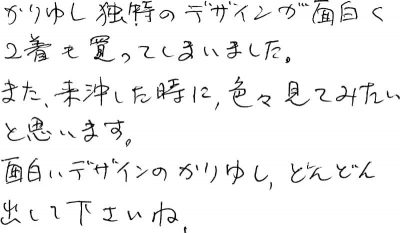 かりゆし独特のデザインが面白く
2着も買ってしまいました。
また、来沖した時に、色々見てみたい
と思います。
面白いデザインのかりゆし、どんどん
出して下さいね。